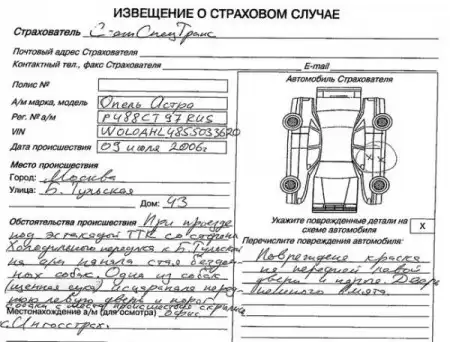 ИЗВЕЩЕНИЕ О СТРАХОВОМ СЛУЧАЕ
Страхователь С-отСпецТранс
Почтовый адрес Страхователя
Контактный тел., факс Страхователя E-mail
Полис №
А/м марка, модель Опель Астра
Рег. № а/м Р488СТ97RUS
VIN W0L0AHL4855033620
Дата происшествия 09 июля 2006г
Место происшествия
Город: Москва
Улица: Б. Тульская
Дом: 43
Обстоятельства происшествия При проезде
под эстакадой ТТК со стороны
Холодильного переулка к Б. Тульской
на а/м напала стая бездом
ных собак. Одна из собак
(щенная сука) исцарапала перед
нюю левую дверь и порог
собаки с места происшествия скрылись
Местонахождение а/м (для осмотра) офис
к. Ингосстрах.
Автомобиль Страхователя
Укажите поврежденные детали на
схеме автомобиля
X
Перечислите повреждения автомобиля:
Повреждена краска
на передней левой
двери и пороге. Дверь
немного мята.